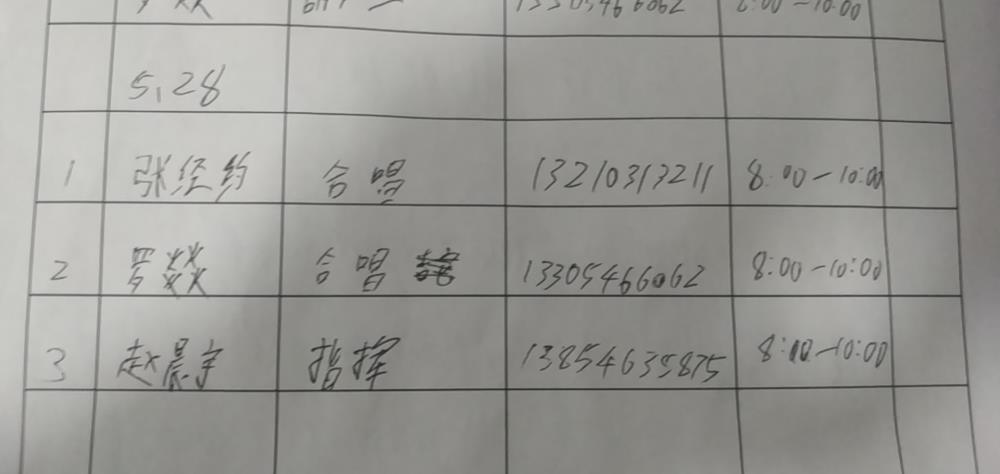 13305466062 8:00-10:00
5,28
1 张经纬 合唱 13210313211 8:00-10:00
2 罗燚 合唱 13305466062 8:00-10:00
3 赵晨宇 指挥 13854635875 8:00-10:00